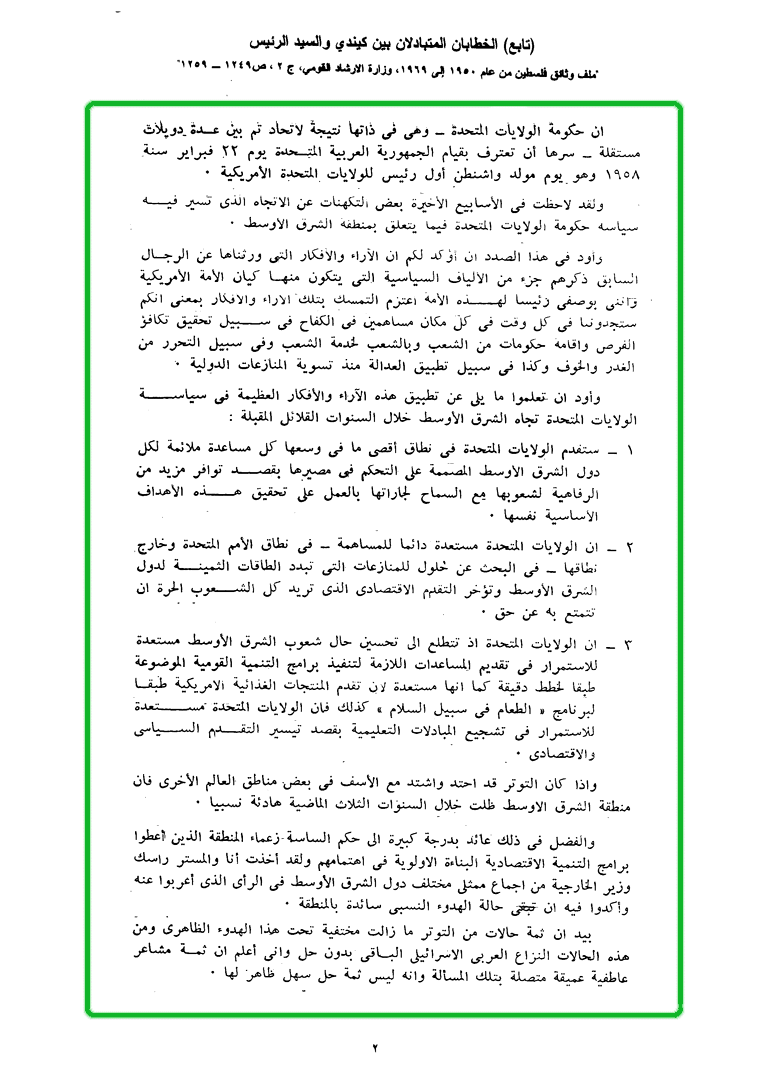 (تابع) الخطابان المتبادلان بين كيندي والسيد الرئيس
"ملف وثائق فلسطين من عام ١٩٥٠ إلى ١٩٦٩، وزارة الارشاد القومي، ج ٢ ، ص١٢٤٩ – ١٢٥٩"
ان حكومة الولايات المتحدة – وهى فى ذاتها نتيجة لاتحاد تم بين عدة دويلات
مستقلة – سرها أن تعترف بقيام الجمهورية العربية المتحدة يوم ٢٢ فبراير سنة
١٩٥٨ وهو يوم مولد واشنطن أول رئيس للولايات المتحدة الأمريكية ٠
ولقد لاحظت فى الأسابيع الأخيرة بعض التكهنات عن الاتجاه الذى تسير فيه
سياسه حكومة الولايات المتحدة فيما يتعلق بمنطقة الشرق الأوسط ٠
وأود فى هذا الصدد ان أؤكد لكم ان الآراء والأفكار التى ورثناها عن الرجال
السابق ذكرهم جزء من الألياف السياسية التى يتكون منها كيان الأمة الأمريكية
وانى بوصفى رئيسا لهذه الأمة اعتزم التمسك بتلك الآراء والافكار بمعنى انكم
ستجدوننا فى كل وقت فى كل مكان مساهمين فى الكفاح فى سبيل تحقيق تكافؤ
الفرص واقامة حكومات من الشعب وبالشعب لخدمة الشعب وفى سبيل التحرر من
الغدر والخوف وكذا فى سبيل تطبيق العدالة منذ تسوية المنازعات الدولية ٠
وأود ان تعلموا ما يلى عن تطبيق هذه الآراء والأفكار العظيمة فى سياسة
الولايات المتحدة تجاه الشرق الأوسط خلال السنوات القلائل المقبلة :
١ – ستقدم الولايات المتحدة فى نطاق أقصى ما فى وسعها كل مساعدة ملائمة لكل
دول الشرق الأوسط المصممة على التحكم فى مصيرها بقصد توافر مزيد من
الرفاهية لشعوبها مع السماح لجاراتها بالعمل على تحقيق هذه الأهداف
الاساسية نفسها ٠
٢ – ان الولايات المتحدة مستعدة دائما للمساهمة – فى نطاق الأمم المتحدة وخارج
نطاقها – فى البحث عن حلول للمنازعات التى تبدد الطاقات الثمينة لدول
الشرق الأوسط وتؤخر التقدم الاقتصادى الذى تريد كل الشعوب الحرة ان
تتمتع به عن حق ٠
٣ – ان الولايات المتحدة اذ تتطلع الى تحسين حال شعوب الشرق الأوسط مستعدة
للاستمرار فى تقديم المساعدات اللازمة لتنفيذ برامج التنمية القومية الموضوعة
طبقا لخطط دقيقة كما انها مستعدة لان تقدم المنتجات الغذائية الامريكية طبقا
لبرنامج « الطعام فى سبيل السلام » كذلك فان الولايات المتحدة مستعدة
للاستمرار فى تشجيع المبادلات التعليمية بقصد تيسير التقدم السياسى
والاقتصادى ٠
واذا كان التوتر قد احتد واشتد مع الأسف فى بعض مناطق العالم الأخرى فان
منطقة الشرق الاوسط ظلت خلال السنوات الثلاث الماضية هادئة نسبيا ٠
والفضل فى ذلك عائد بدرجة كبيرة الى حكم الساسة زعماء المنطقة الذين أعطوا
برامج التنمية الاقتصادية البناءة الاولوية فى اهتمامهم ولقد أخذت أنا والمستر راسك
وزير الخارجية من اجماع ممثلى مختلف دول الشرق الأوسط فى الرأى الذى أعربوا عنه
وأكدوا فيه ان تبقى حالة الهدوء النسبى سائدة بالمنطقة ٠
بيد ان ثمة حالات من التوتر ما زالت مختفية تحت هذا الهدوء الظاهرى ومن
هذه الحالات النزاع العربى الاسرائيلى الباقى بدون حل وانى أعلم ان ثمة مشاعر
عاطفية عميقة متصلة بتلك المسألة وانه ليس ثمة حل سهل ظاهر لها ٠
٢